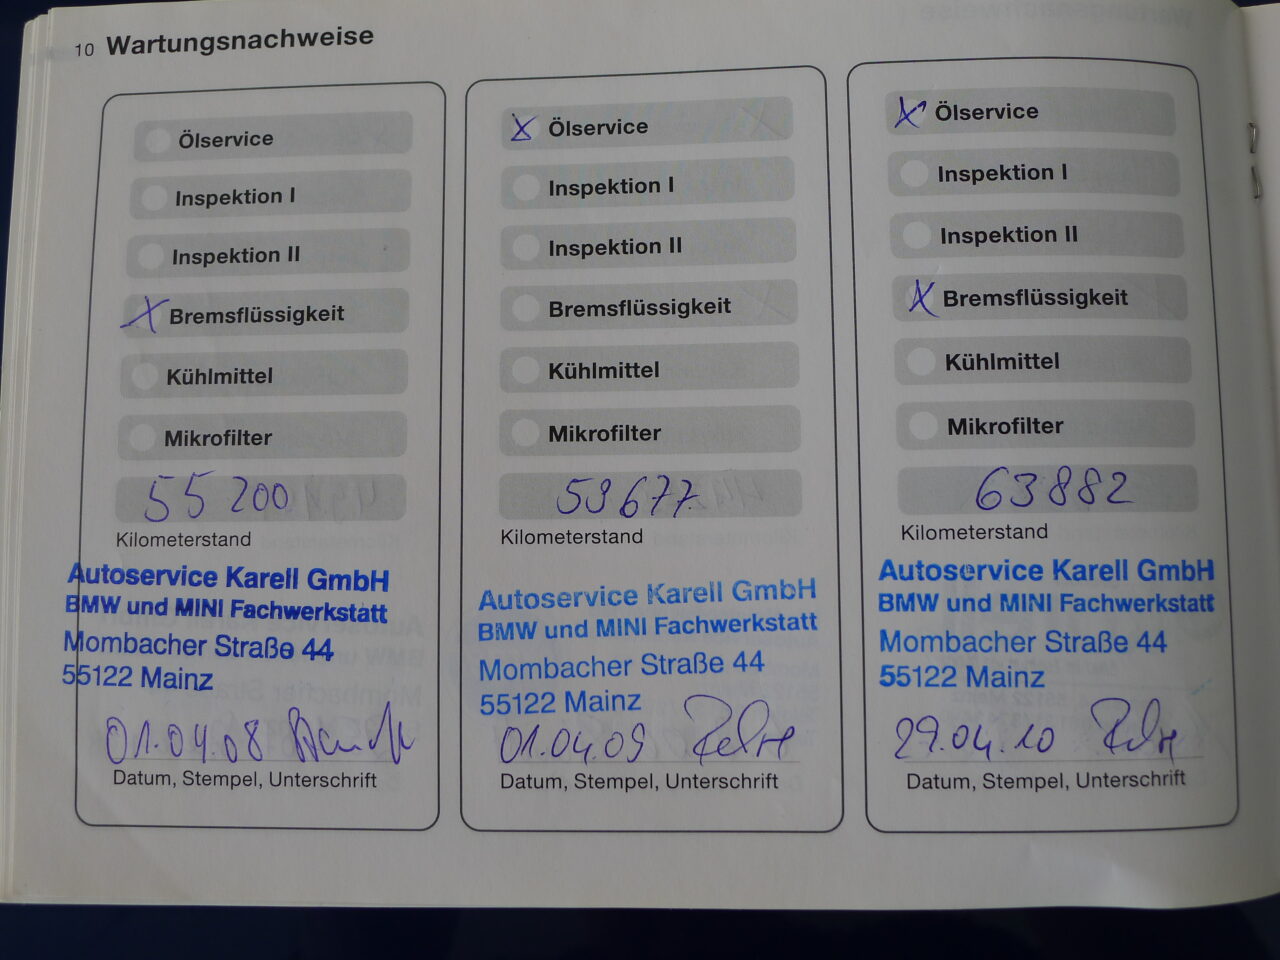 10 Wartungsnachweise
Ölservice
Inspektion I
Inspektion II
Bremsflüssigkeit
Kühlmittel
Mikrofilter
55200
Kilometerstand
Autoservice Karell GmbH
BMW und MINI Fachwerkstatt
Mombacher Straße 44
55122 Mainz
01.04.08
Datum, Stempel, Unterschrift
X Ölservice
Inspektion I
Inspektion II
Bremsflüssigkeit
Kühlmittel
Mikrofilter
59677
Kilometerstand
Autoservice Karell GmbH
BMW und MINI Fachwerkstatt
Mombacher Straße 44
55122 Mainz
01.04.09
Datum, Stempel, Unterschrift
X Ölservice
Inspektion I
Inspektion II
X Bremsflüssigkeit
Kühlmittel
Mikrofilter
63882
Kilometerstand
Autoservice Karell GmbH
BMW und MINI Fachwerkstatt
Mombacher Straße 44
55122 Mainz
29.04.10
Datum, Stempel, Unterschrift